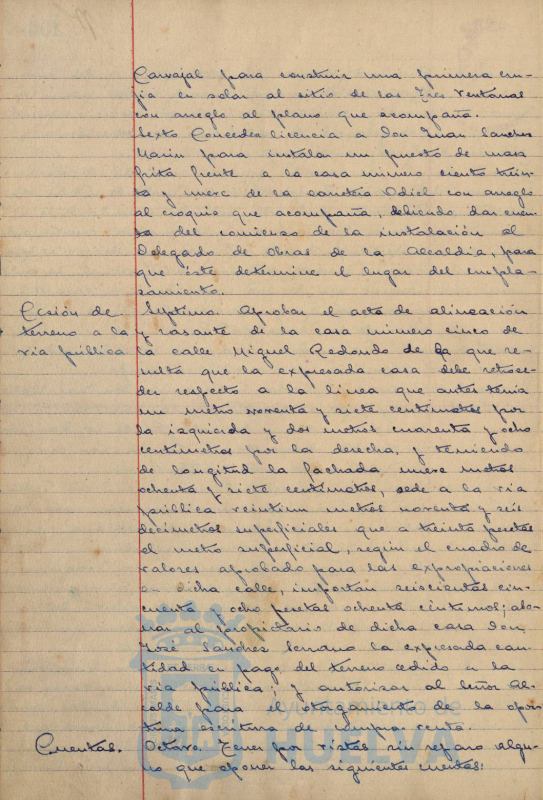 Carvajal para construir una primera cru-
jia en solar al sitio de las Tres Ventanas
con arreglo al plano que acompaña.
Sexto Conceder licencia a Don Juan Sanchez
Marin para instalar un puesto de masa
frita frente a la casa número ciento trein-
ta y nueve de la carretera Odiel con arreglo
al croquis que acompaña, debiendo dar cuen-
ta del comienzo de la instalación al
Delegado de Obras de la Alcaldia, para
que éste determine el lugar del empla-
zamiento.
Cesión de
terreno a la
via pública
Septimo. Aprobar el acta de alineación
y rasante de la casa número cinco de
la calle Miguel Redondo de la que re-
sulta que la expresada casa debe retroce-
der respecto a la linea que antes tenia
un metro noventa y siete centimetros por
la izquierda y dos metros cuarenta y ocho
centimetros por la derecha, y teniendo
de longitud la fachada nueve metros
ochenta y siete centimetros, cede a la via
pública veintiun metros noventa y seis
decimetros superficiales que a treinta pesetas
el metro superficial, según el cuadro de
valores aprobado para las expropiaciones
en dicha calle, importan seiscientas cin-
cuenta y ocho pesetas ochenta centimos; abo-
nar al propietario de dicha casa Don
José Sanchez Serrano la expresada can-
tidad en pago del terreno cedido a la
via pública; y autorizar al Señor Al-
calde para el otorgamiento de la opor-
tuna escritura de compra venta.
Cuentas.
Octavo. Tener por vistas sin reparo algu-
no que oponer las siguientes cuentas:
Ayuntamiento de
HUELVA